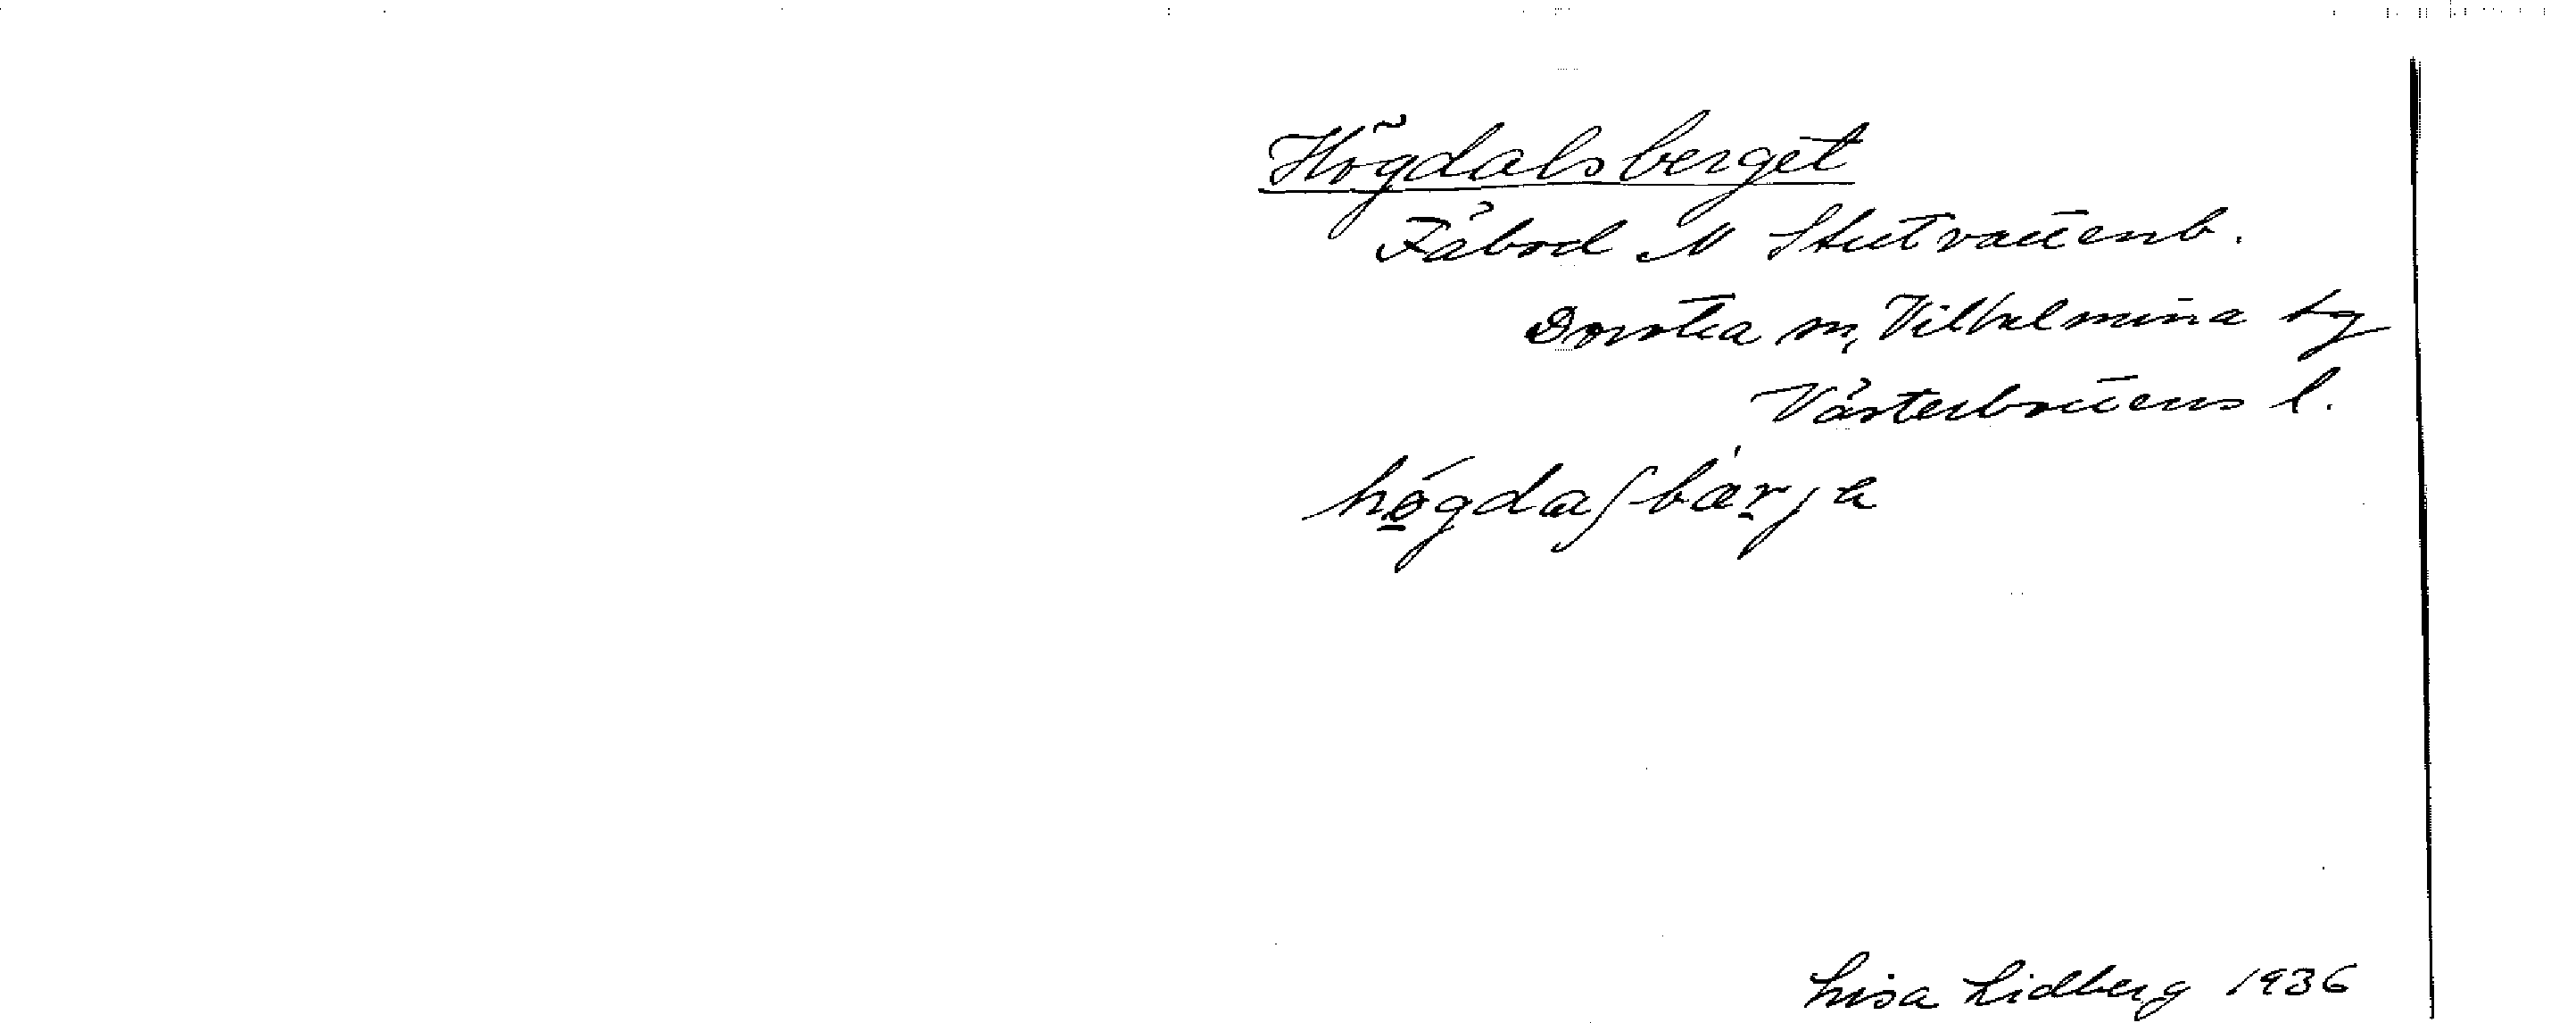 Högdalsberget
Fäbod N Stutvattenb.
Dorotea sn, Vilhelmina tg
Västerbottens l.
högdaʃbærja
Lisa Lidberg 1936